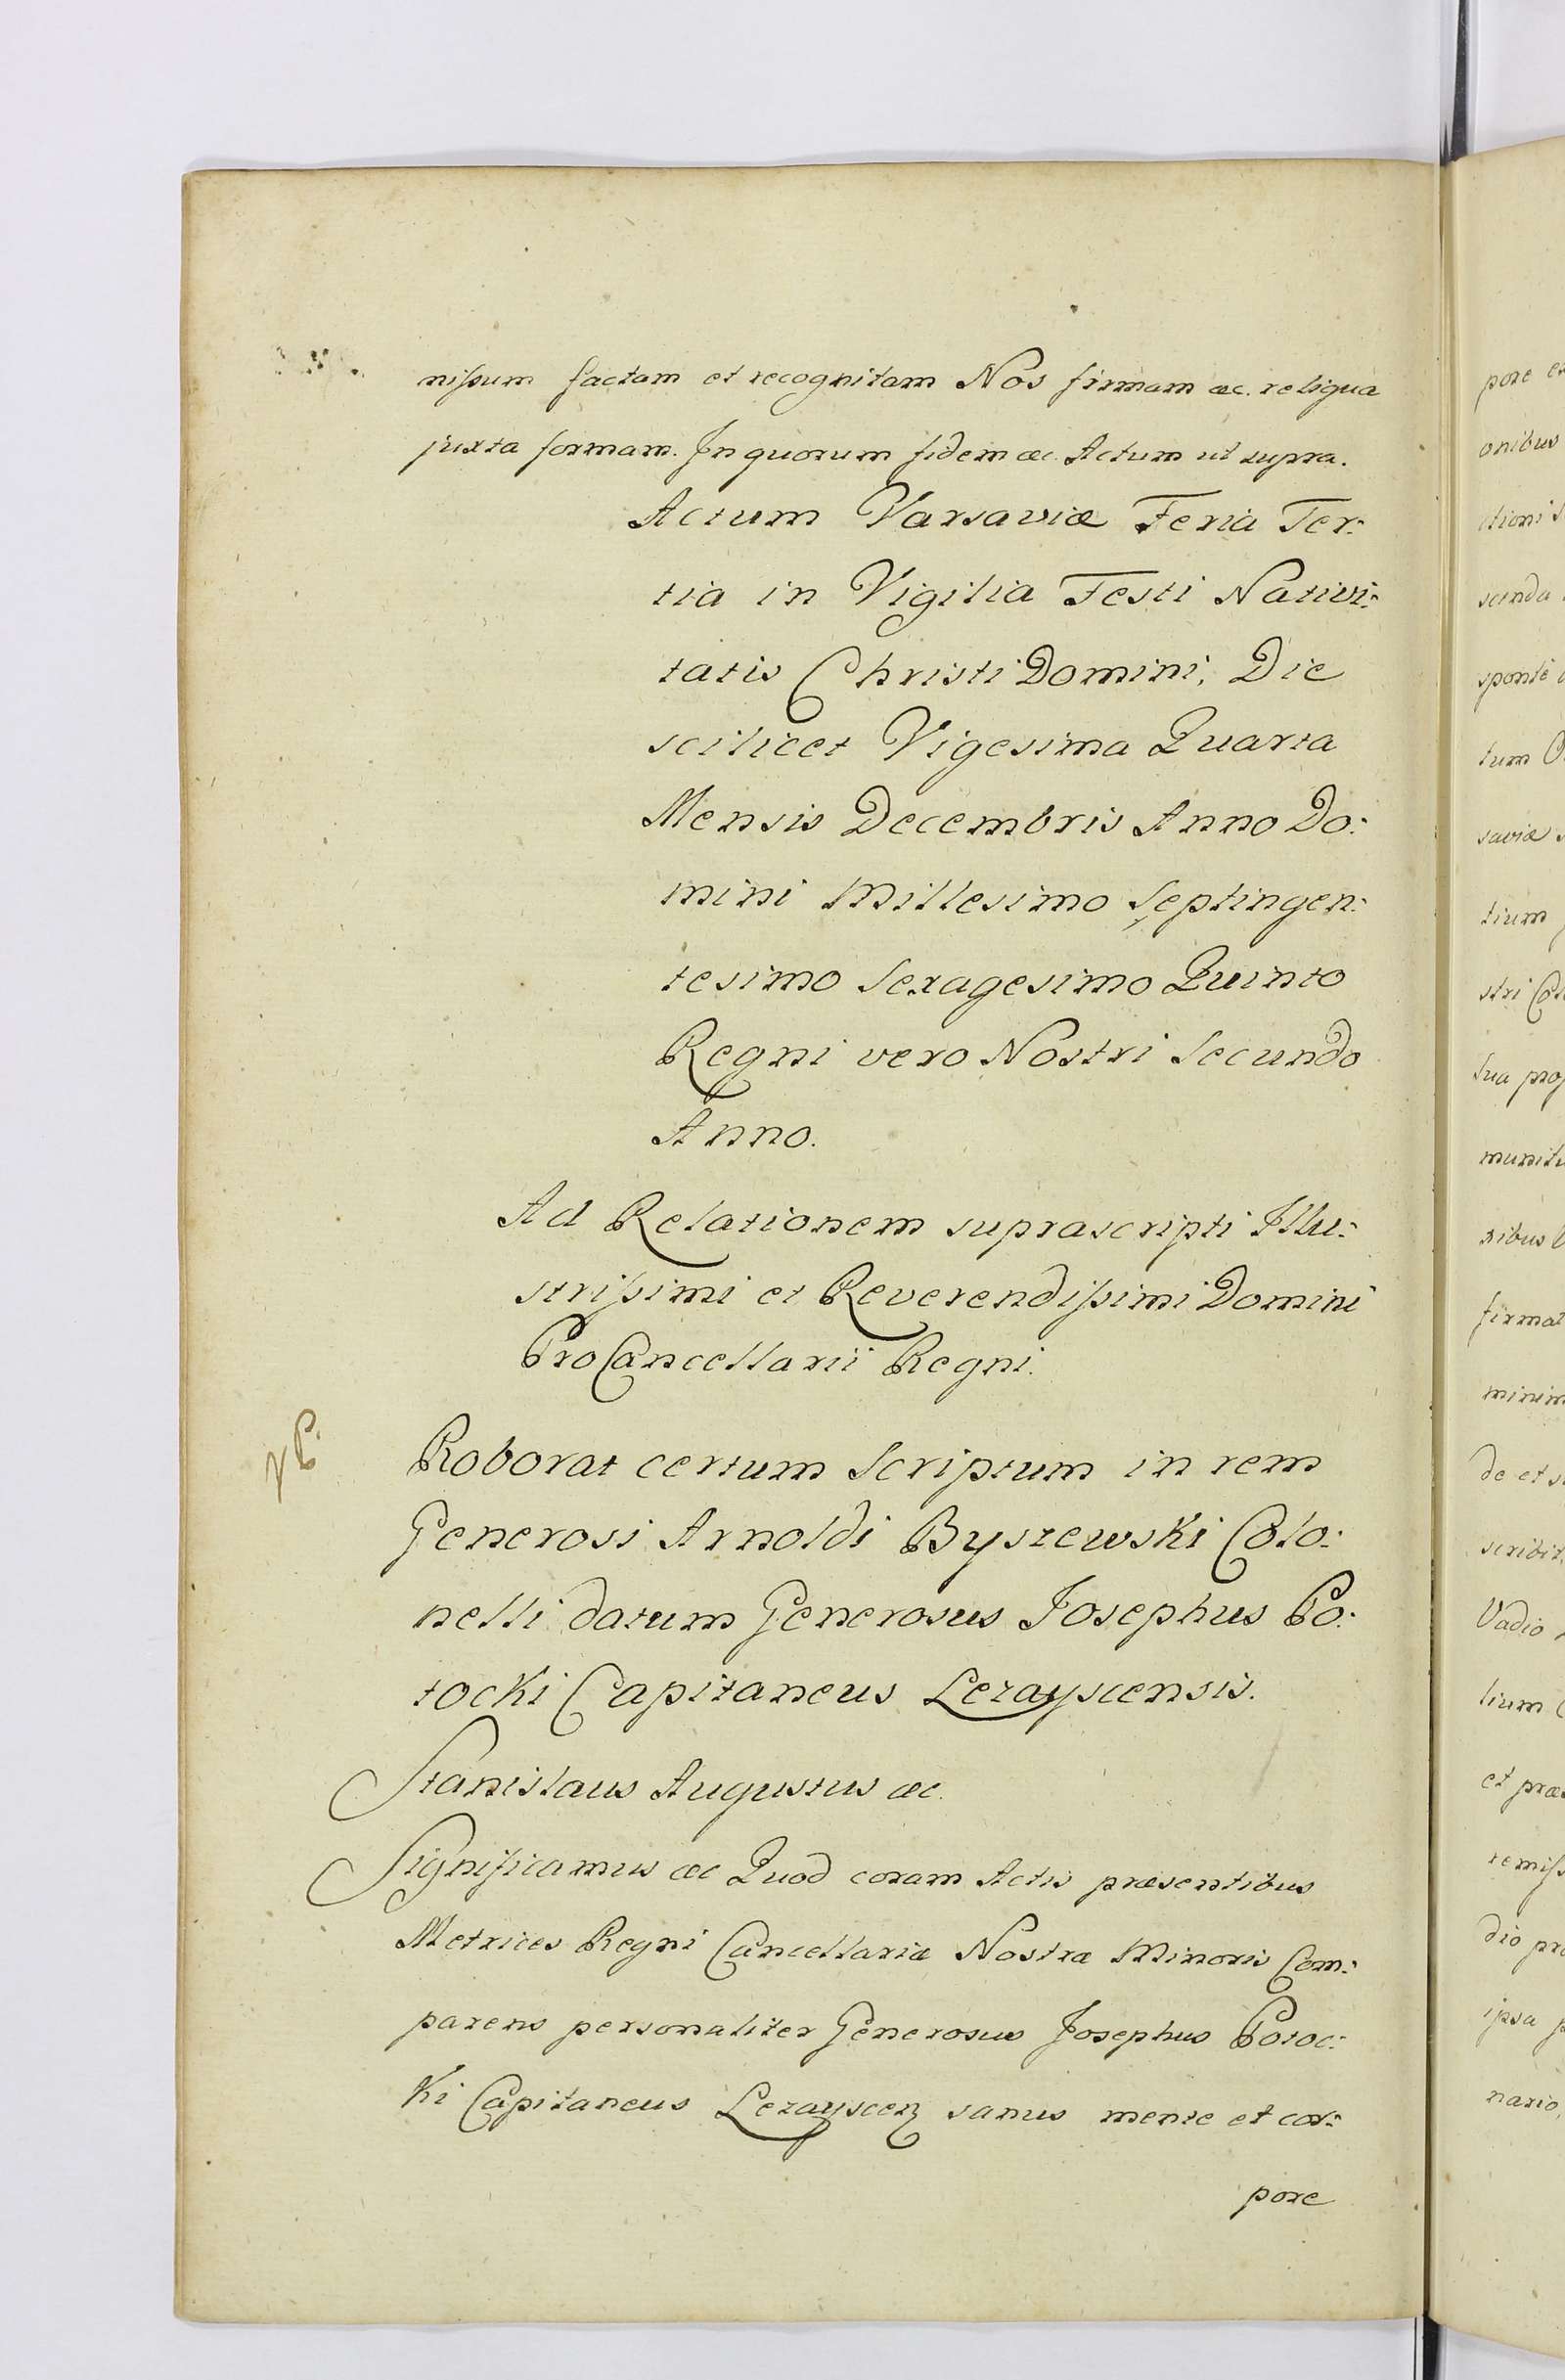 nissum factam et recognitam Nos firmam &c. reliqua
juxta formam. In quorum fidem &c. Actum ut supra.
Actum Varsaviæ Feria Ter:
tia in Vigilia Festi Nativi:
tatis Christi Domini, Die
scilicet Vigesima Quarta
Mensis Decembris Anno Do:
mini Millesimo Septingen:
tesimo Sexagesimo Quinto
Regni vero Nostri Secundo
Anno.
Ad Relationem suprascripti Illu:
strissimi et Reverendissimi Domini
ProCancellarii Regni.
Roborat certum Scriptum in rem
Generosi Arnoldi Byszewski Colo:
nelli datum Generosus Josephus Po:
tocki Capitaneus Lezayscensis.
Stanislaus Augustus &c.
Significamus &c Quod coram Actis præsentibus
Metrices Regni Cancellariæ Nostræ Minoris Com:
parens personaliter Generosus Josephus Potoc:
ki Capitaneus Lezayscen sanus mente et cor:
pore
pore
onibus
scinda
sponte
tum
saviæ
tium
stri
Sua
firmat
de et
Vadio
lium
et
dio
ipsa
nario,